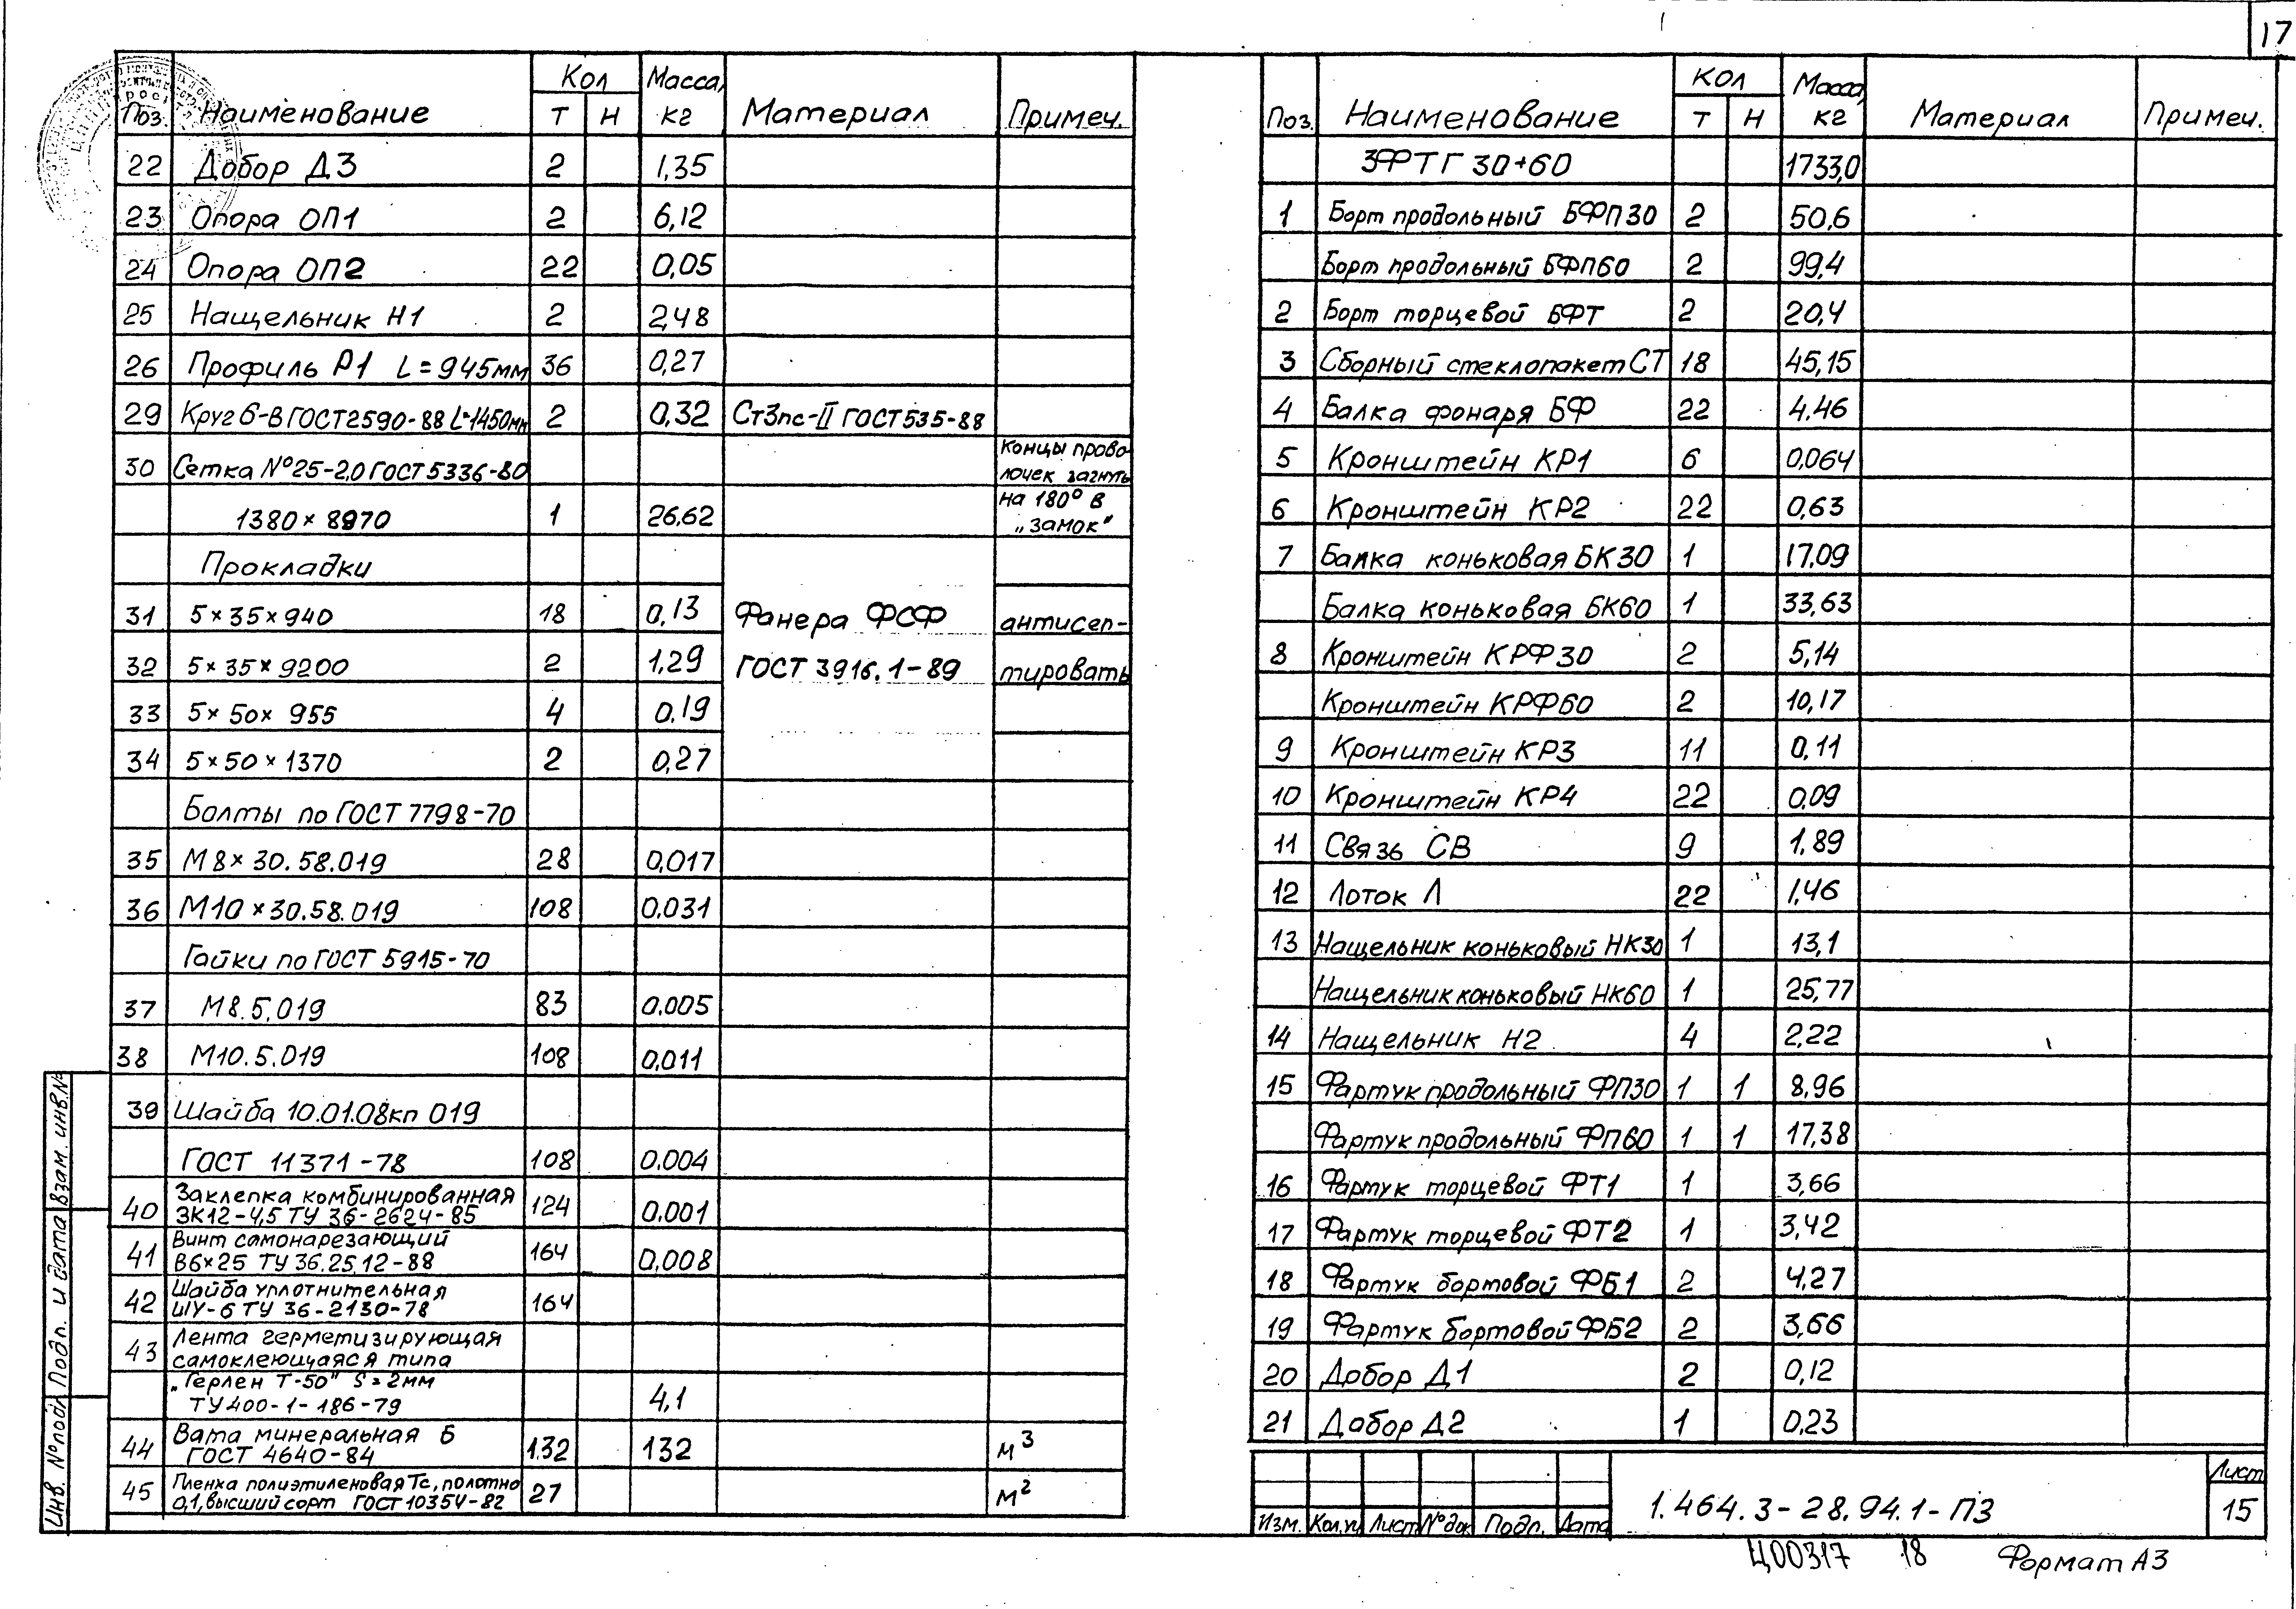 17
Поз. Наименование Кол Масса, кг Материал Примеч.
Т Н
22 Добор Д3 2 1,35
23 Опора ОП1 2 6,12
24 Опора ОП2 22 0,05
25 Нащельник Н1 2 2,48
26 Профиль Р1 L=945мм 36 0,27
29 Круг 6-В ГОСТ 2590-88 L=1450мм 2 0,32 Ст3пс-II ГОСТ 535-88
30 Сетка №25-2,0 ГОСТ 5336-80 Концы прово-
лочек загнуть
1380×8970 1 26,62 на 180° в
„замок"
Прокладки
31 5×35×940 18 0,13 Фанера ФСФ антисеп-
32 5×35×9200 2 1,29 ГОСТ 3916.1-89 тировать
33 5×50×955 4 0,19
34 5×50×1370 2 0,27
Болты по ГОСТ 7798-70
35 М8×30.58.019 28 0,017
36 М10×30.58.019 108 0,031
Гайки по ГОСТ 5915-70
37 М8.5.019 83 0.005
38 М10.5.019 108 0,011
39 Шайба 10.01.08кп 019
ГОСТ 11371-78 108 0.004
40 Заклепка комбинированная
ЗК12-4,5 ТУ 36-2624-85 124 0.001
41 Винт самонарезающий
В6×25 ТУ 36.25.12-88 164 0,008
42 Шайба уплотнительная
ШУ-6 ТУ 36-2130-78 164
43 Лента герметизирующая
самоклеющаяся типа
„Герлен Т-50" S=2мм
ТУ400-1-186-79 4,1
44 Вата минеральная Б
ГОСТ 4640-84 1.32 132 м³
45 Пленка полиэтиленовая Тс, полотно
0,1, высший сорт ГОСТ 10354-82 27 м²
Инв. №подл. Подп. и дата Взам. инв.№
Поз. Наименование Кол Масса, кг Материал Примеч.
Т Н
3ФТГ 30+60 1733,0
1 Борт продольный БФП30 2 50,6
Борт продольный БФП60 2 99,4
2 Борт торцевой БФТ 2 20,4
3 Сборный стеклопакет СТ 18 45,15
4 Балка фонаря БФ 22 4.46
5 Кронштейн КР1 6 0,064
6 Кронштейн КР2 22 0,63
7 Балка коньковая БК30 1 17.09
Балка коньковая БК60 1 33,63
8 Кронштейн КРФ30 2 5,14
Кронштейн КРФ60 2 10,17
9 Кронштейн КР3 11 0,11
10 Кронштейн КР4 22 0.09
11 Связь СВ 9 1.89
12 Лоток Л 22 1,46
13 Нащельник коньковый НК30 1 13,1
Нащельник коньковый НК60 1 25,77
14 Нащельник Н2 4 2,22
15 Фартук продольный ФП30 1 1 8,96
Фартук продольный ФП60 1 1 17,38
16 Фартук торцевой ФТ1 1 3,66
17 Фартук торцевой ФТ2 1 3,42
18 Фартук бортовой ФБ1 2 4,27
19 Фартук бортовой ФБ2 2 3,66
20 Добор Д1 2 0,12
21 Добор Д2 1 0,23
Изм. Кол.уч Лист №док Подп. Дата
1.464.3-28.94.1-ПЗ
Лист
15
Ц00317 18 Формат А3